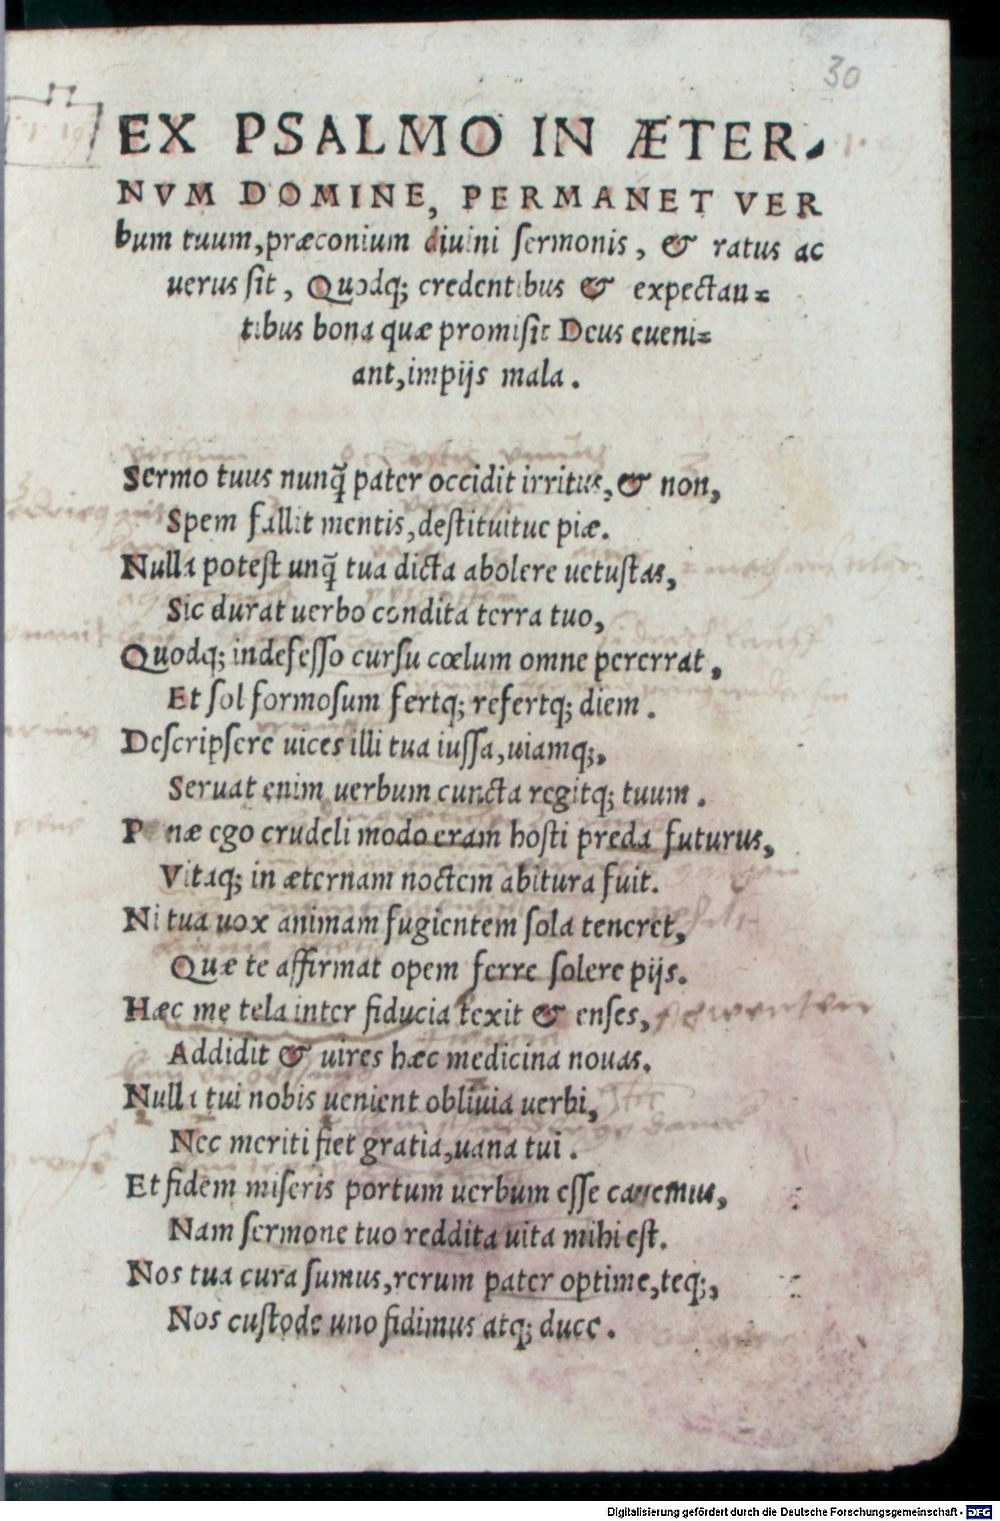 30
EX PSALMO IN ÆTER-
NVM DOMINE, PERMANET VER
bum tuum, præconium diuini sermonis, & ratus ac
uerus sit, Quodq; credentibus & expectan=
tibus bona quæ promisit Deus eueni=
ant, impijs mala.
Sermo tuus nunq̃ pater occidit irritus, & non,
Spem fallit mentis, destituitue piæ.
Nulla potest unq̃ tua dicta abolere uetustas,
Sic durat uerbo condita terra tuo,
Quodq; indefesso cursu cœlum omne pererrat,
Et sol formosum fertq; refertq; diem.
Descripsere uices illi tua iussa, uiamq;,
Seruat enim uerbum cuncta regitq; tuum.
Penæ ego crudeli modo eram hosti preda futurus,
Vitaq; in æternam noctem abitura fuit.
Ni tua uox animam fugientem sola teneret,
Quæ te affirmat opem ferre solere pijs.
Hæc me tela inter fiducia texit & enses,
Addidit & uires hæc medicina nouas.
Nulla tui nobis uenient obliuia uerbi,
Nec meriti fiet gratia, uana tui.
Et fidem miseris portum uerbum esse canemus,
Nam sermone tuo reddita uita mihi est.
Nos tua cura sumus, rerum pater optime, teq;,
Nos custode uno fidimus atq; duce.
Digitalisierung gefördert durch die Deutsche Forschungsgemeinschaft - DFG